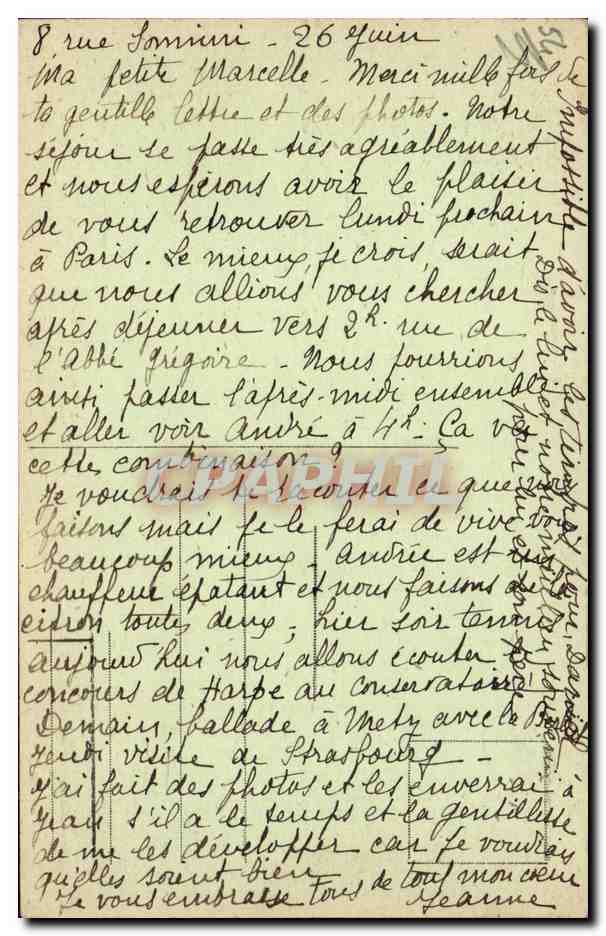 8, rue Sommi - 26 Juin
54
Ma petite Marcelle. Merci mille fois de
ta gentille lettre et des photos. Notre
séjour se passe très agréablement
et nous espérons avoir le plaisir
de vous retrouver lundi prochain
à Paris. Le mieux, je crois, serait
que nous allions vous chercher
après déjeuner vers 2h. rue de
l'Abbé Grégoire. Nous pourrions
ainsi passer l'après-midi ensemble
et aller voir André à 4h. Ça va
cette combinaison?
CPAPHIL
Je voudrais te raconter ce que nous
faisons mais je le ferai de vive voix
beaucoup mieux. Andrée est un
chauffeur épatant et nous faisons du
citron, toutes deux, hier soir tennis
aujourd'hui nous allons écouter
concours de Harpe au conservatoire
Demain, ballade à Metz avec la
Jeudi visite de Strasbourg -
J'ai fait des photos et les enverrai à
Jean s'il a le temps et la gentillesse
de me les développer car je voudrais
qu'elles soient bien
Je vous embrasse tous de tout mon cœur
Jeanne
Impossible d'avoir les timbres pour
Dis le lui et notre souvenir
pour lui et son père